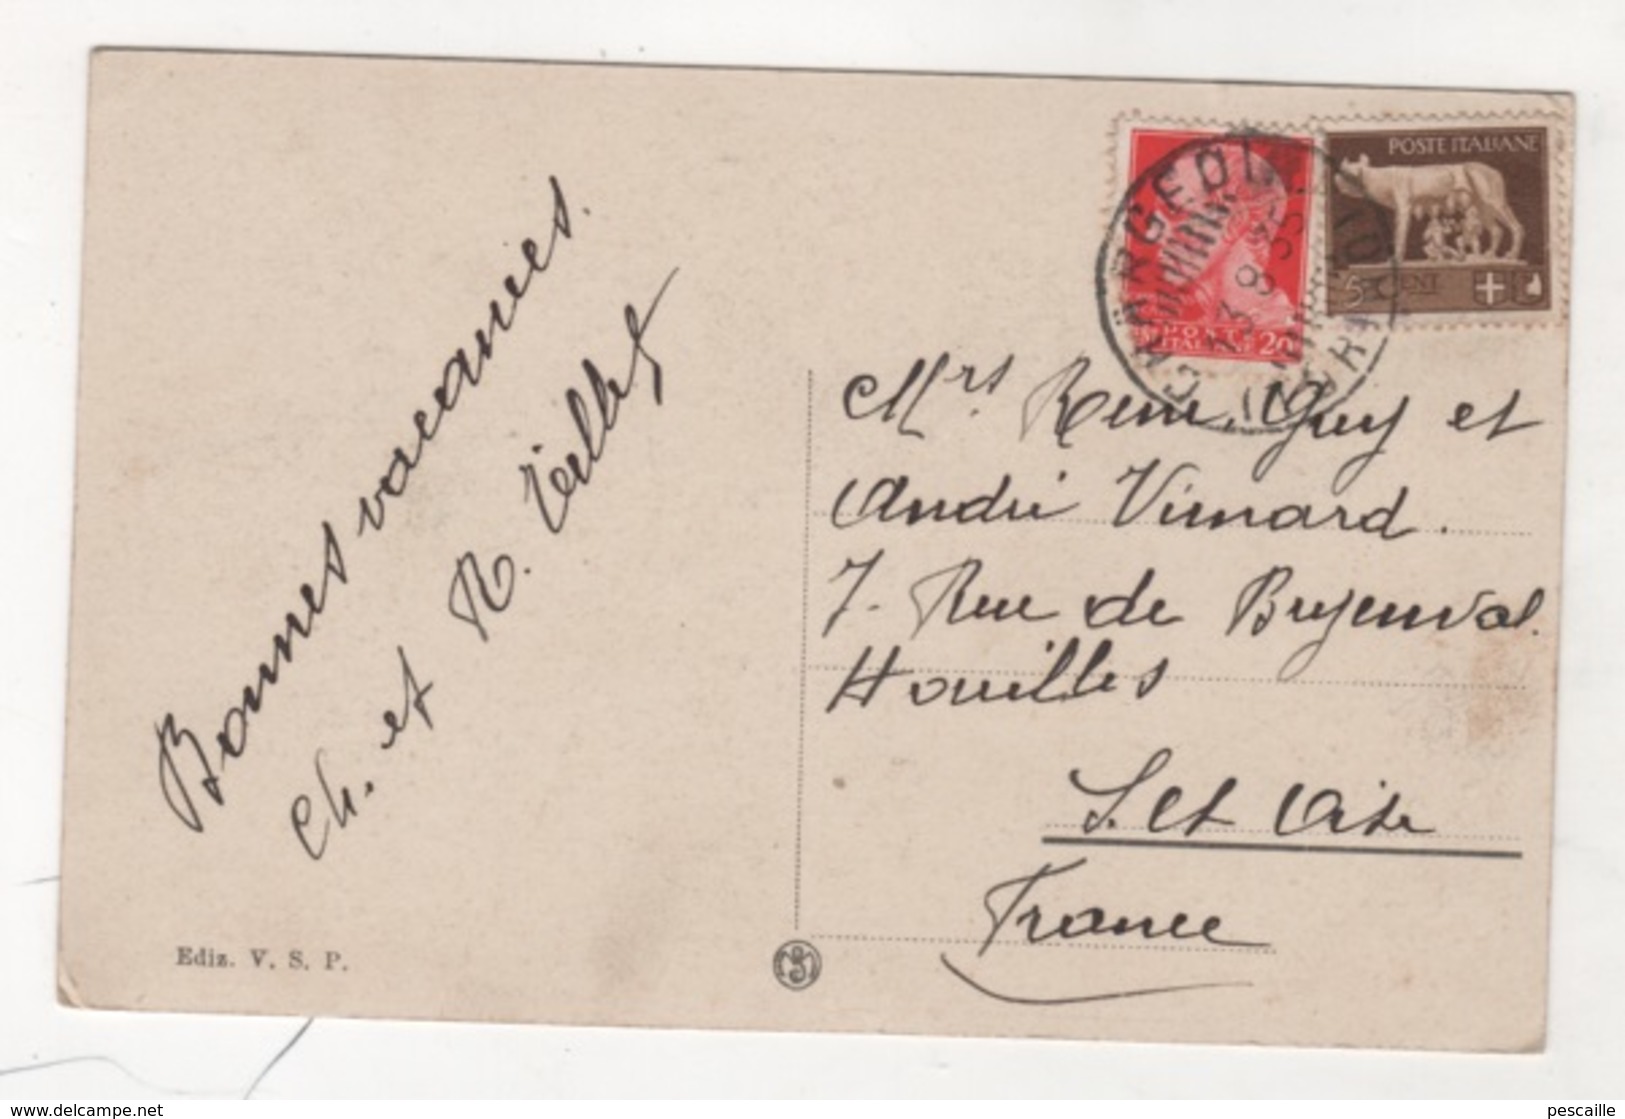 Bonnes vacances.
Ch. et R.
Ediz. V. S. P.
POSTE ITALIANE
20
POSTE ITALIANE
5 CENT
13 9 35
Mrs René, Guy et
André Vimard.
7. Rue de Buzenval.
Houilles
S. et Oise
France
www.delcampe.net
pescaille